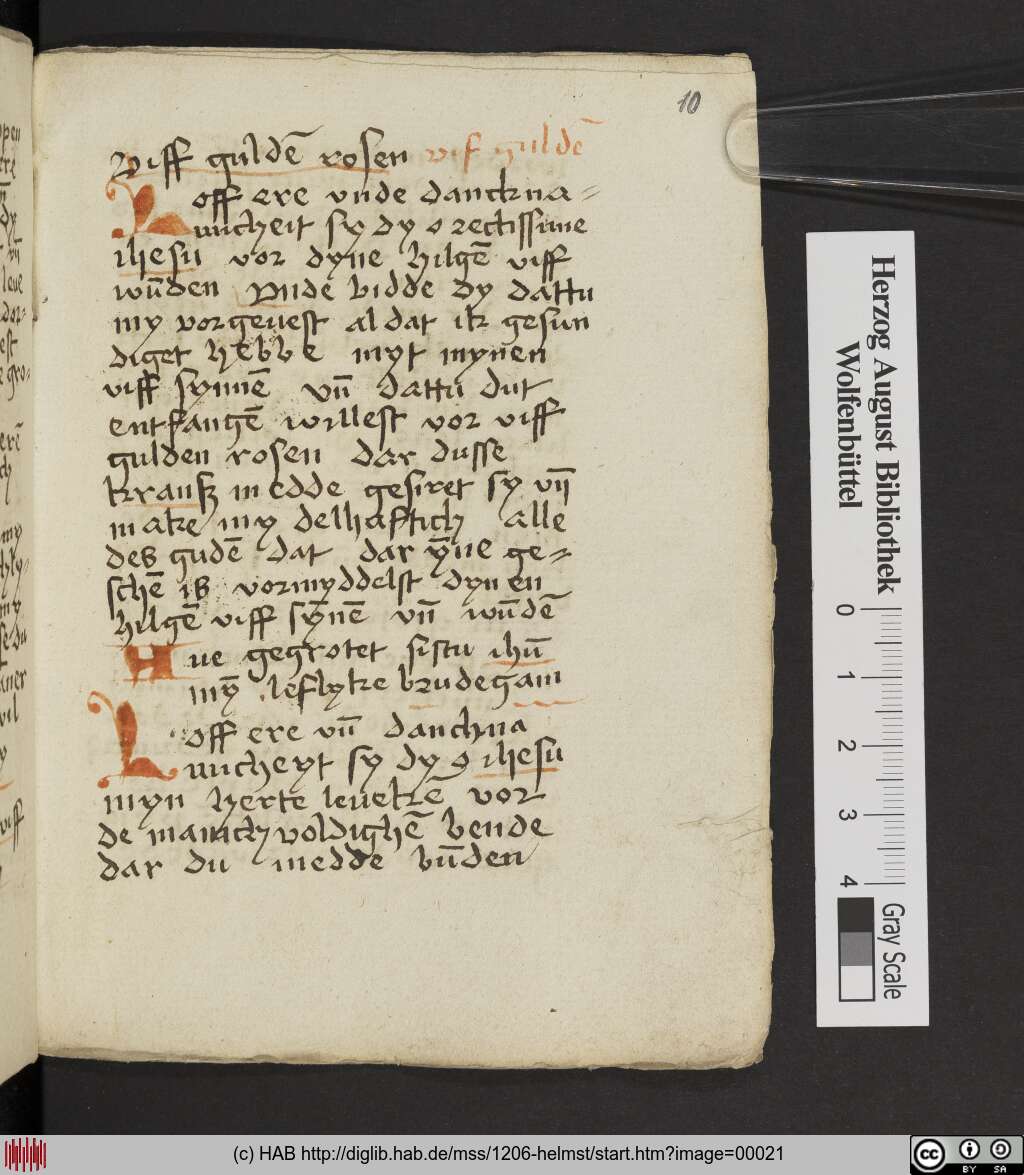 10
Viff guldē rosen vif guldē
Loff ere vnde danckna-
micheit sy dy o rectissime
ihesu vor dyne hilgē viff
wūden vnde bidde dy dattu
my vorgeuest al dat ik gesun
diget hebbe myt mynen
viff synnē vn̄ dattu dut
entfangē willest vor viff
gulden rosen dar dusse
krantz medde gesiret sy vn̄
make my delhafftich alle
des gudē dat dar ȳne ge-
schē is vormyddelst dynen
hilgē viff sȳnē vn̄ wūdē
Aue gegrotet sistu ihū
mȳ leflyke brudegam
Loff ere vn̄ danchna
micheyt sy dy o ihesu
myn herte leueke vor
de manichvoldighē bende
dar du medde būden
Herzog August Bibliothek
Wolfenbüttel
0 1 2 3 4
Gray Scale
(c) HAB http://diglib.hab.de/mss/1206-helmst/start.htm?image=00021
cc BY SA